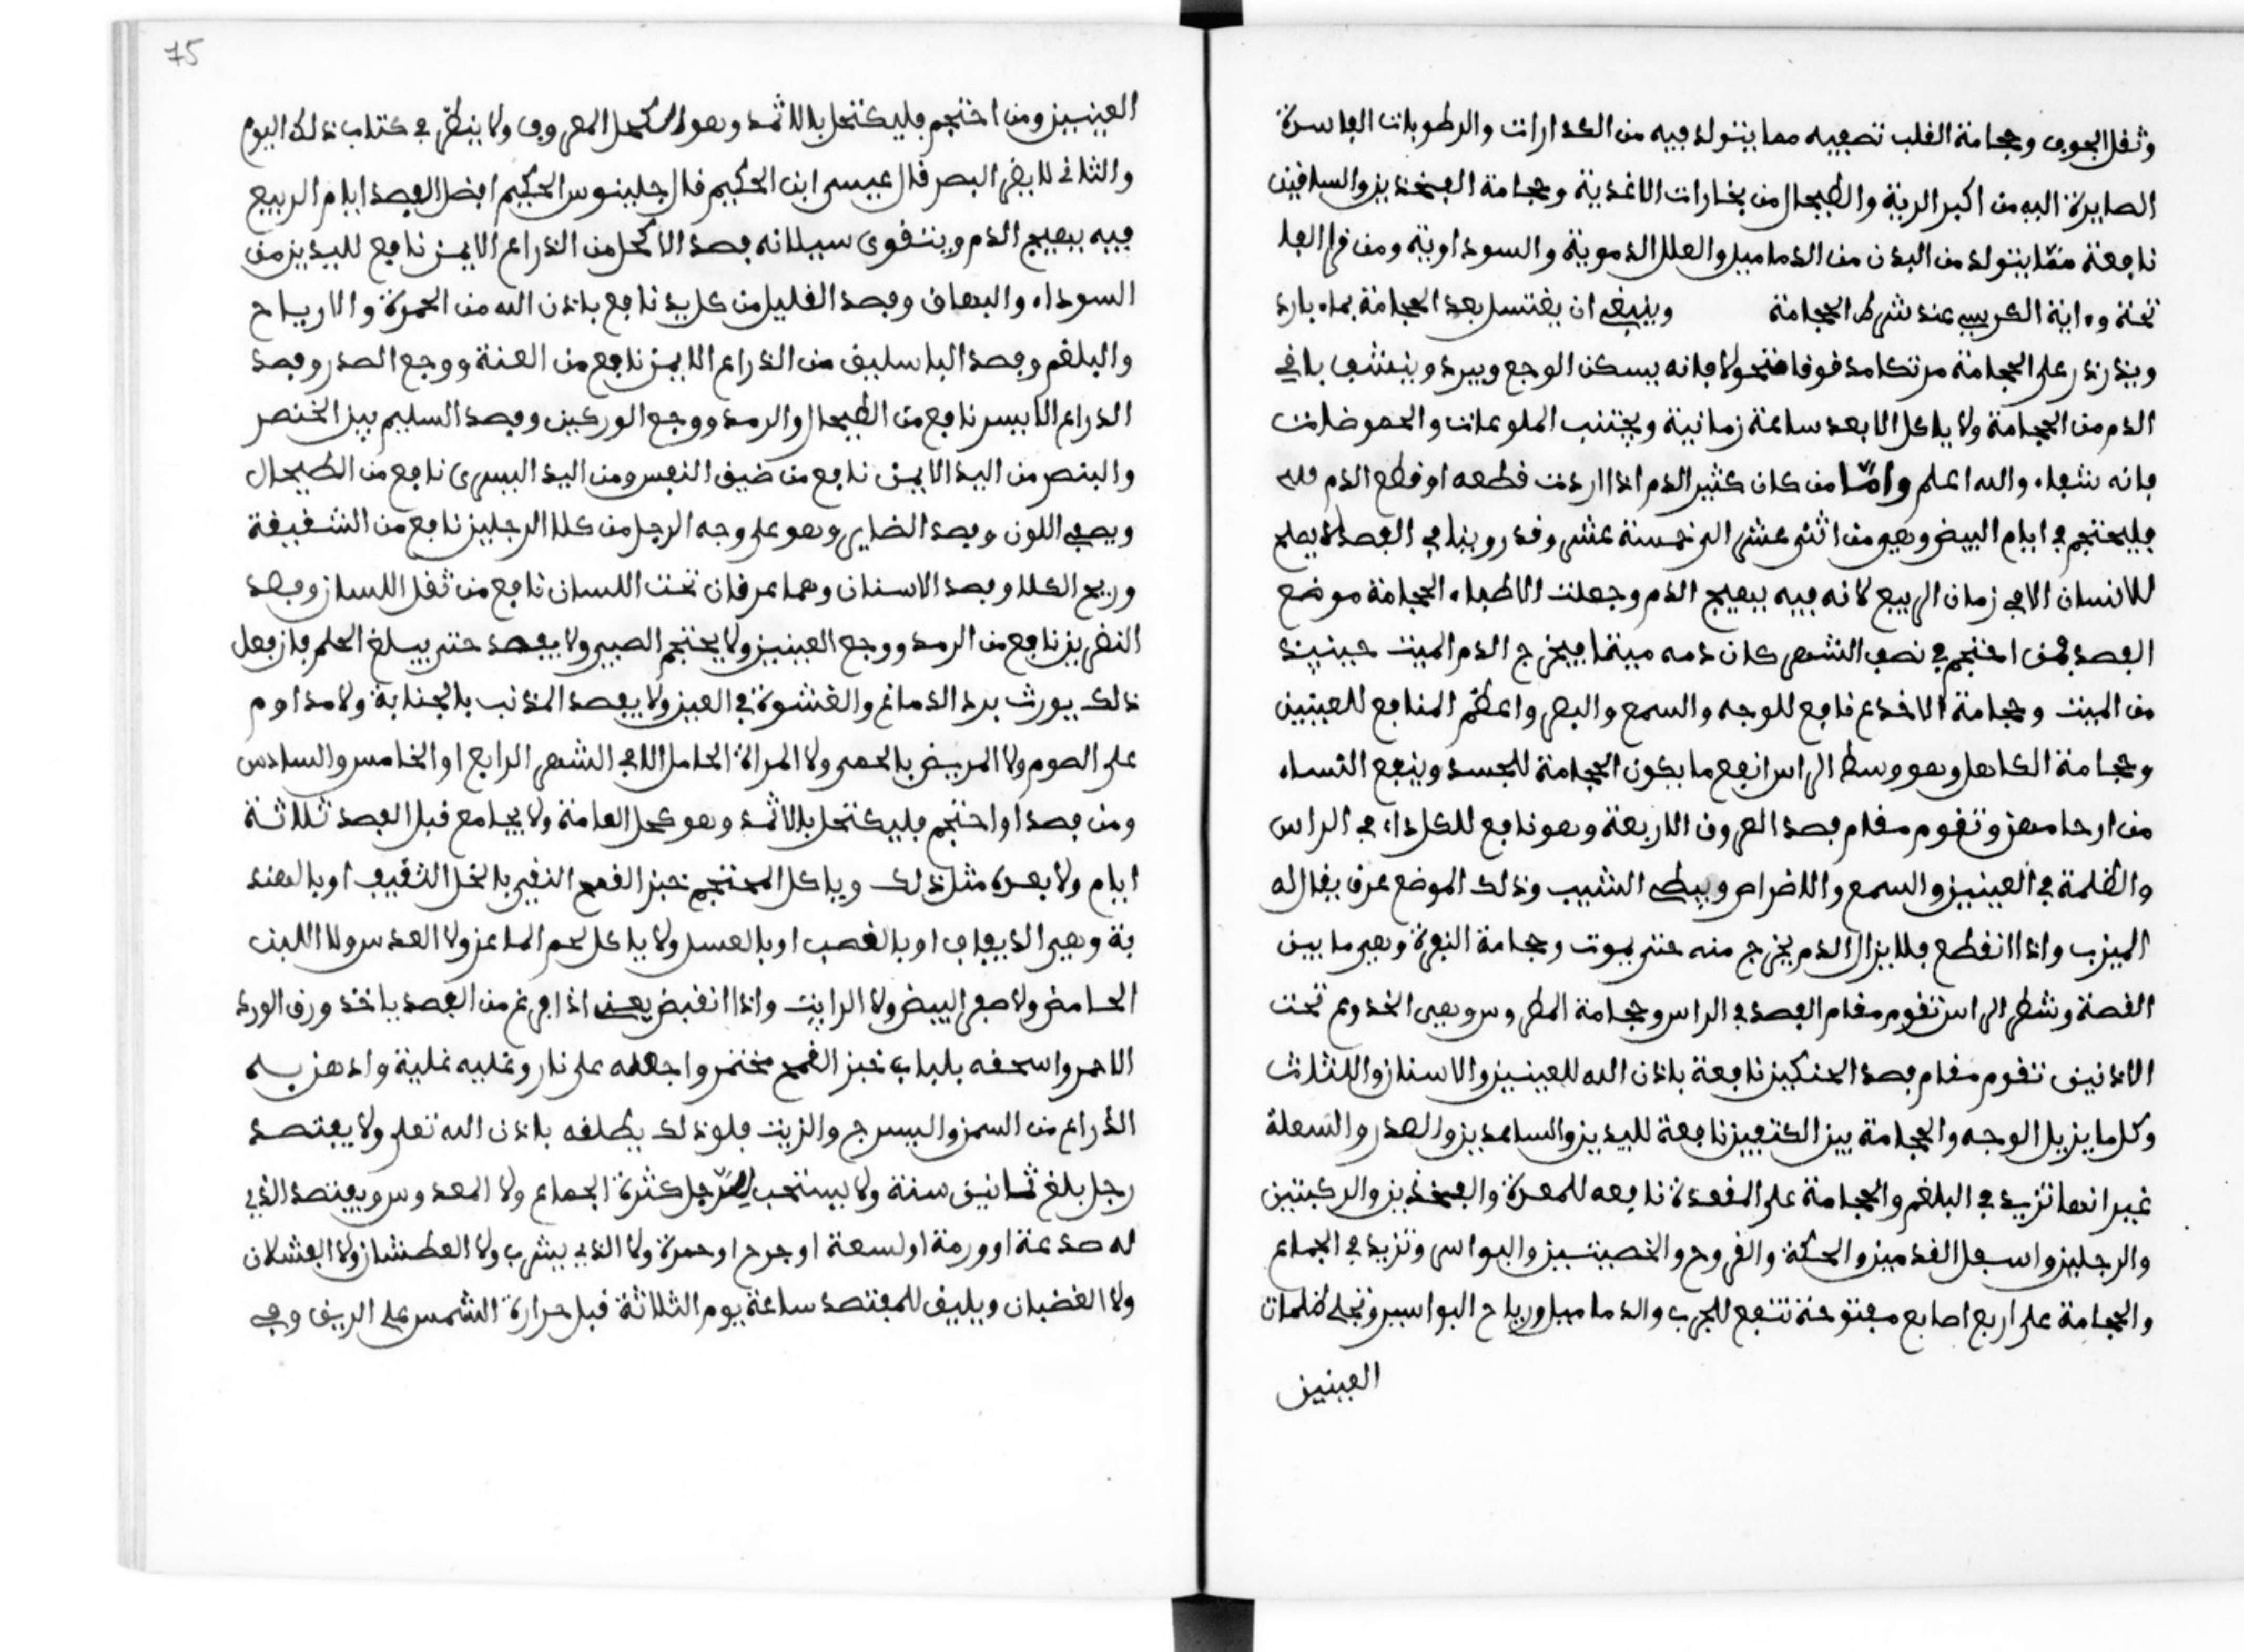 وثقل الجوف وحجامة القلب تصفيه مما يتولد فيه من الكدارات والرطوبات الفاسدة
الصايرة اليه من اكبر الرية والطيحال من بخارات الاغذية وحجامة الفخذين والساقين
نافعة ممّا يتولد من البدن من الدماميل والعلل الدموية والسوداوية ومن قرا الفا
تحتة وءاية الكرسي عند شرط الحجامة وينبغي ان يغتسل بعد الحجامة بماء بارد
ويذرذر على الحجامة مرتكا مدقوقا منحولا فانه يسكن الوجع ويبرد وينشف باقي
الدم من الحجامة ولا ياكل الا بعد ساعة زمانية ويجتنب الملوحات والحموضات
فانه شفاء والله اعلم وامّا من كان كثير الدم اذا اردت قطعه او قطع الدم فله
فليحتجم في ايام البيض وهي من اثنى عشر الى خمسة عشر وقد روينا في الفصد لا يصلح
للانسان الا في زمان الربيع لانه فيه يهيج الدم وجعلت الاطباء الحجامة موضع
الفصد فمن احتجم في نصف الشهر كان دمه ميتا فيخرج الدم الميت حينيذ
من الميت وحجامة الاخدع نافع للوجه والسمع والبصر واعظم المنافع للعينين
وحجامة الكاهل وهو وسط الراس انفع ما يكون الحجامة للجسد وينفع النساء
من ارحامهن وتقوم مقام فصد العروق الاربعة وهو نافع للكل داء في الراس
والظلمة في العينين والسمع والاضراس ويبطي الشيب وذلك الموضع عرق يقال له
الميزب واذا انقطع فلا يزال الدم يخرج منه حتى يموت وحجامة النقرة وهي ما بين
القصة وشطر الراس تقوم مقام الفصد في الراس وحجامة المطروس وهي الخدوع تحت
الاذنين تقوم مقام فصد الحنكين نافعة باذن الله للعينين والاسنان واللثات
وكل ما يزيل الوجه والحجامة بين الكتفين نافعة لليدين والساعدين والصدر والسعلة
غير انها تزيد في البلغم والحجامة على المقعدة نافعه للمعدة والفخذين والركبتين
والرجلين واسفل القدمين والحكة والقروح والخصيتين والبواسر وتزيد في الجماع
والحجامة على اربع اصابع مفتوحة تنفع للجرب والدماميل ورياح البواسير وتجلى ظلمات
العينين
75
العينين ومن احتجم فليكتحل بالاثمد وهو الكحل المعروف ولا ينظر في كتاب ذلك اليوم
والثاني لا يضر البصر قال عيسى ابن الحكيم قال جلينوس الحكيم افضل الفصد ايام الربيع
فيه يهيج الدم ويتقوى سيلانه فصد الاكحل من الذراع الايمن نافع لليدين من
السوداء والبهاق وفصد القليل من كل يد نافع باذن الله من الحمرة والارياح
والبلغم وفصد الباسليق من الذراع الايمن نافع من العنة ووجع الصدر وفصد
الذراع الايسر نافع من الطيحال والرمد ووجع الوركين وفصد السليم بين الخنصر
والبنصر من اليد الايمن نافع من ضيق النفس ومن اليد اليسرى نافع من الطيحال
ويصفي اللون وفصد الضاير وهو على وجه الرجل من كلا الرجلين نافع من الشقيقة
وريح الكلا وفصد الاسنان وهما عرقان تحت اللسان نافع من ثقل اللسان وفصد
النضرين نافع من الرمد ووجع العينين ولا يحتجم الصبي ولا يفصد حتى يبلغ الحلم فان فعل
ذلك يورث برد الدماغ والغشوة في العين ولا يفصد المذنب بالجنابة ولا مداوم
على الصوم ولا المريض بالحمى ولا المراة الحامل الا في الشهر الرابع او الخامس والسادس
ومن فصد او احتجم فليكتحل بالاثمد وهو كحل العامة ولا يجامع قبل الفصد ثلاثة
ايام ولا بعده مثل ذلك وياكل المحتجم خبز القمح النقي بالخل الثقيف او بالهند
بة وهي الذيفاف او بالقصب او بالعسل ولا ياكل لحم الماعز ولا العدس ولا اللبن
الحامض ولا صفر البيض ولا الرايت واذا انقبض يعني اذا فرغ من الفصد ياخذ ورق الورد
الاحمر واسحقه بلباب خبز القمح مختمر واجعله على نار وغليه غلية وادهن به
الذراع من السمن والسيرج والزيت فلو ذلك يطلقه باذن الله تعلى ولا يفتصد
رجل بلغ ثمانين سنة ولا يستحب للرّجل كثرة الجماع ولا المعدوس ويفتصد الذي
له صدعة او ورمة او لسعة او جرح او حمرة ولا الذي يشرب ولا العطشان ولا الفشلان
ولا الغضبان ويليق للمفتصد ساعة يوم الثلاثة قبل حرارة الشمس على الريق وفي